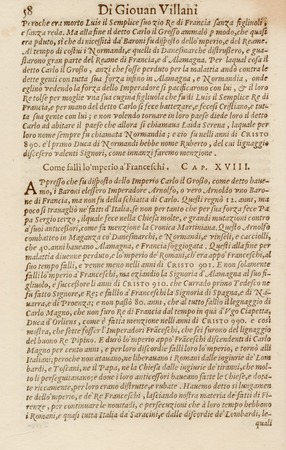 58 Di Giouan Villani
Peroche era morto Luis il Semplice suo zio Re di Francia sanza figliuoli,
e sanza reda. Ma alla fine il detto Carlo il Grosso amalò p modo, che quasi
era pduto, sì che di necessità da' Baroni fu disposto dello'mperio, e del Reame.
Al tempo di costui i Normandi, e quelli di Danesmarche distrussero, e gua-
starono gran parte del Reame di Francia, e d'Alamagna. Per laqual cosa il
detto Carlo il Grosso, anzi che fosse perduto per la malattia andò contra le
dette genti con tutta sua forza insino in Alamagna, e Normandia, onde
eglino vedendo la forza dello Imperadore si pacificarono con lui, & il loro
Re tolse per moglie una sua cugina figliuola che fu di Luis il Semplice Re di
Francia, e per mano del detto Carlo si fece battezzare, e fecesi Cristiano, e tut-
ta sua gente con lui; e non volendo tornare in loro paese diede loro il detto
Carlo ad abitare il paese che allora si chiamava Laida Serena, laquale per
loro nome sempre fu chiamata Normandia; e ciò fu nelli anni di CRISTO
890. e'l primo Duca di Normandi hebbe nome Ruberto, del cui lignaggio
discesero valenti Signori, come innanzi faremo menzione.
Come fallì lo'mperio a' Franceschi. CAP. XVIII.
APpresso che fu disposto dello Imperio Carlo il Grosso, come detto have-
mo, i Baroni elessero Imperadore Arnolfo, o vero Arnoldo uno Baro-
ne di Francia, ma non fu della schiatta di Carlo. Questi regnò 12. anni, ma
poco si travagliò ne' fatti d'Italia, se non tanto che per sua forza fece fare Pa
pa Sergio terzo, ilquale fece nella Chiesa molte, e grandi mutazioni contro
a' suoi antecessori, come fa menzione la Cronica Martiniana. Questo Arnolfo
combatteo in Maganza co' Danesmarchi, e Normandi, e vinseli, e cacciolli,
che 40. anni haveano Alamagna, e Francia soggiogata. Questi alla fine per
malattia divenne perduto, e lo'mperio de' Romani, ch'era appo' Franceschi, al
suo tempo fallì, e venne meno nelli anni di CRISTO 901. E non solamente
fallì lo'mperio a' Franceschi, ma eziandio la Signoria d'Alamagna al suo fi-
gliuolo, e successore li anni di CRISTO 910. che Currado primo Tedesco ne
fu fatto Signore, e Re; e fallilo a' Franceschi la Signoria di Spagna, e di Na-
varra, e di Proenza; e non passò 80. anni, che al tutto fallìo il lignaggio di
Carlo Magno, che non furo Re di Francia del tempo in quà d'Vgo Ciapetta,
Duca d'Orliens, come è fatta menzione nelli anni di CRISTO 990. e così
mostra, che stette forse gl'Imperadori Frāceschi, che si furono del lignaggio
del buono Re Pipino. E durò lo'mperio appo' Frāceschi discendenti di Carlo
Magno per cento anni, e per loro discordie fallì loro lo'mperio, e tornò alli
Italiani; peroche non atavano, ne liberavano i Romani dalle ingiurie de' Lom-
bardi, e Toscani, ne il Papa, ne la Chiesa dalle ingiurie de' tiranni, che mol-
to li perseguitavano; e dove i loro anticessori haveano fatte le Chiese, e dota-
te riccamente, per loro erano distrutte, e rubate. Havemo detto il lignagget-
to dello'mperio, e de' Re Franceschi, lasciando nostra materia de' fatti di Fi-
renze, per continuare le novità, e persecuzioni che à loro tempo hebbono
i Romani, e quasi tutta Italia da' Saracini, e dalle discordie de' Lombardi, le-
quali